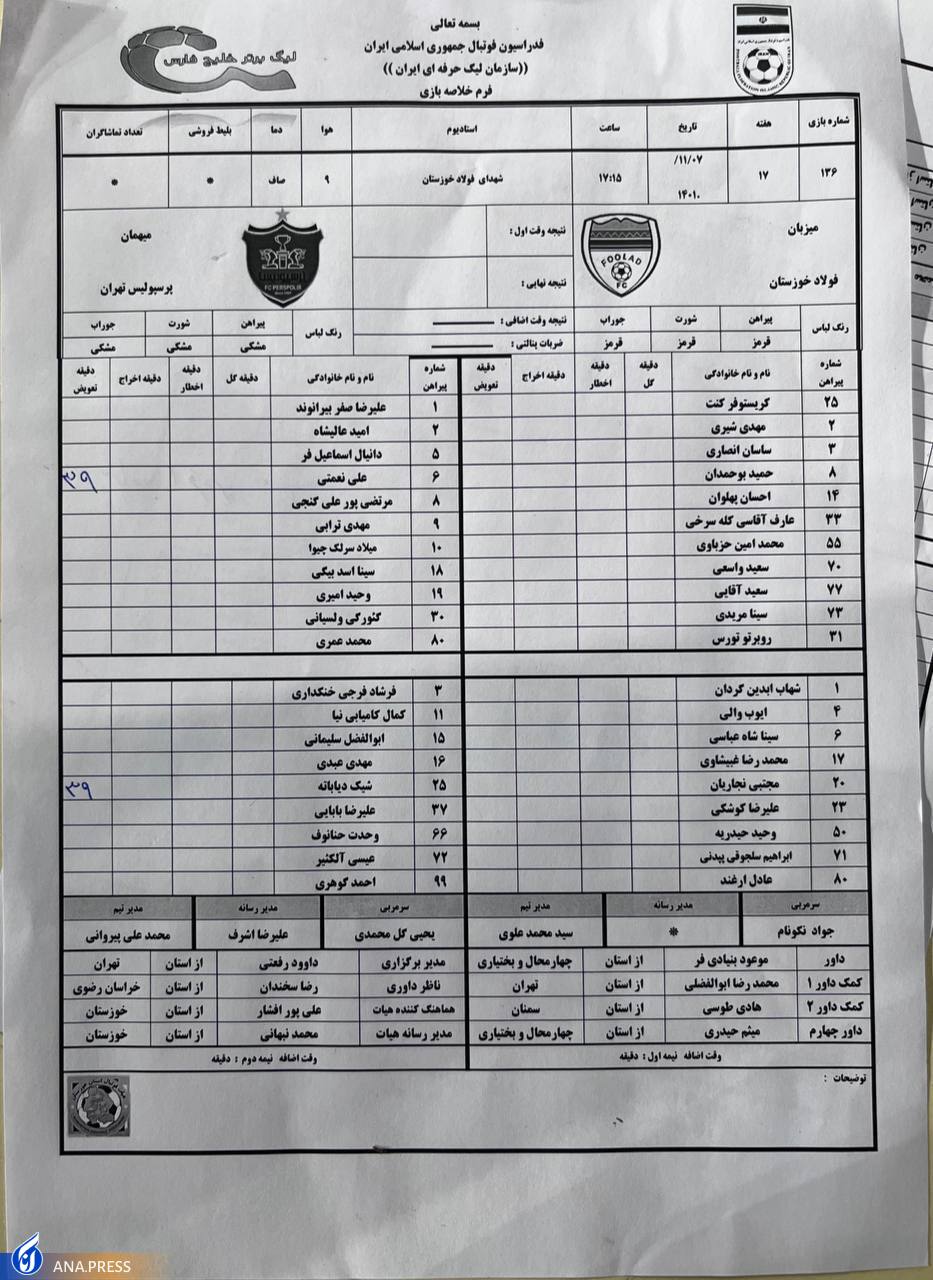 بسمه تعالی
فدراسیون فوتبال جمهوری اسلامی ایران
((سازمان لیگ حرفه ای ایران))
فرم خلاصه بازی
لیگ برتر خلیج فارس
شماره بازی هفته تاریخ ساعت استادیوم هوا دما بلیط فروشی تعداد تماشاگران
۱۳۶ ۱۷ /۱۱/۰۷ ۱۴۰۱۰ ۱۷:۱۵ شهدای فولاد خوزستان ۹ صاف * *
میزبان FOOLAD FC نتیجه وقت اول : میهمان
فولاد خوزستان نتیجه نهایی : FC PERSPOLIS پرسپولیس تهران
رنگ لباس پیراهن شورت جوراب نتیجه وقت اضافی : رنگ لباس پیراهن شورت جوراب
قرمز قرمز قرمز ضربات پنالتی : مشکی مشکی مشکی
شماره پیراهن نام و نام خانوادگی دقیقه گل دقیقه اخطار دقیقه اخراج دقیقه تعویض شماره پیراهن نام و نام خانوادگی دقیقه گل دقیقه اخطار دقیقه اخراج دقیقه تعویض
۲۵ کریستوفر کنت ۱ علیرضا صفر بیرانوند
۲ مهدی شیری ۲ امید عالیشاه
۳ ساسان انصاری ۵ دانیال اسماعیل فر
۸ حمید بوحمدان ۶ علی نعمتی ۳۹
۱۴ احسان پهلوان ۸ مرتضی پور علی گنجی
۳۳ عارف آقاسی کله سرخی ۹ مهدی ترابی
۵۵ محمد امین حزباوی ۱۰ میلاد سرلک چیوا
۷۰ سعید واسعی ۱۸ سینا اسد بیگی
۷۷ سعید آقایی ۱۹ وحید امیری
۷۳ سینا مریدی ۳۰ گئورگی ولسیانی
۳۱ روبرتو تورس ۸۰ محمد عمری
۱ شهاب ابدین گردان ۳ فرشاد فرجی خنکداری
۴ ایوب والی ۱۱ کمال کامیابی نیا
۶ سینا شاه عباسی ۱۵ ابوالفضل سلیمانی
۱۷ محمد رضا غبیشاوی ۱۶ مهدی عبدی
۲۰ مجتبی نجاریان ۲۵ شیک دیاباته ۳۹
۲۳ علیرضا کوشکی ۳۷ علیرضا بابایی
۵۰ وحید حیدریه ۶۶ وحدت حنانوف
۷۱ ابراهیم سلجوقی پیدنی ۷۲ عیسی آلکثیر
۸۰ عادل ارغند ۹۹ احمد گوهری
سرمربی مدیر رسانه مدیر تیم سرمربی مدیر رسانه مدیر تیم
جواد نکونام * سید محمد علوی یحیی گل محمدی علیرضا اشرف محمد علی پیروانی
داور موعود بنیادی فر از استان چهارمحال و بختیاری مدیر برگزاری داوود رفعتی از استان تهران
کمک داور ۱ محمد رضا ابوالفضلی از استان تهران ناظر داوری رضا سخندان از استان خراسان رضوی
کمک داور ۲ هادی طوسی از استان سمنان هماهنگ کننده هیات علی پور افشار از استان خوزستان
داور چهارم میثم حیدری از استان چهارمحال و بختیاری مدیر رسانه هیات محمد نبهانی از استان خوزستان
وقت اضافه نیمه اول : دقیقه وقت اضافه نیمه دوم : دقیقه
توضیحات :
ANA.PRESS